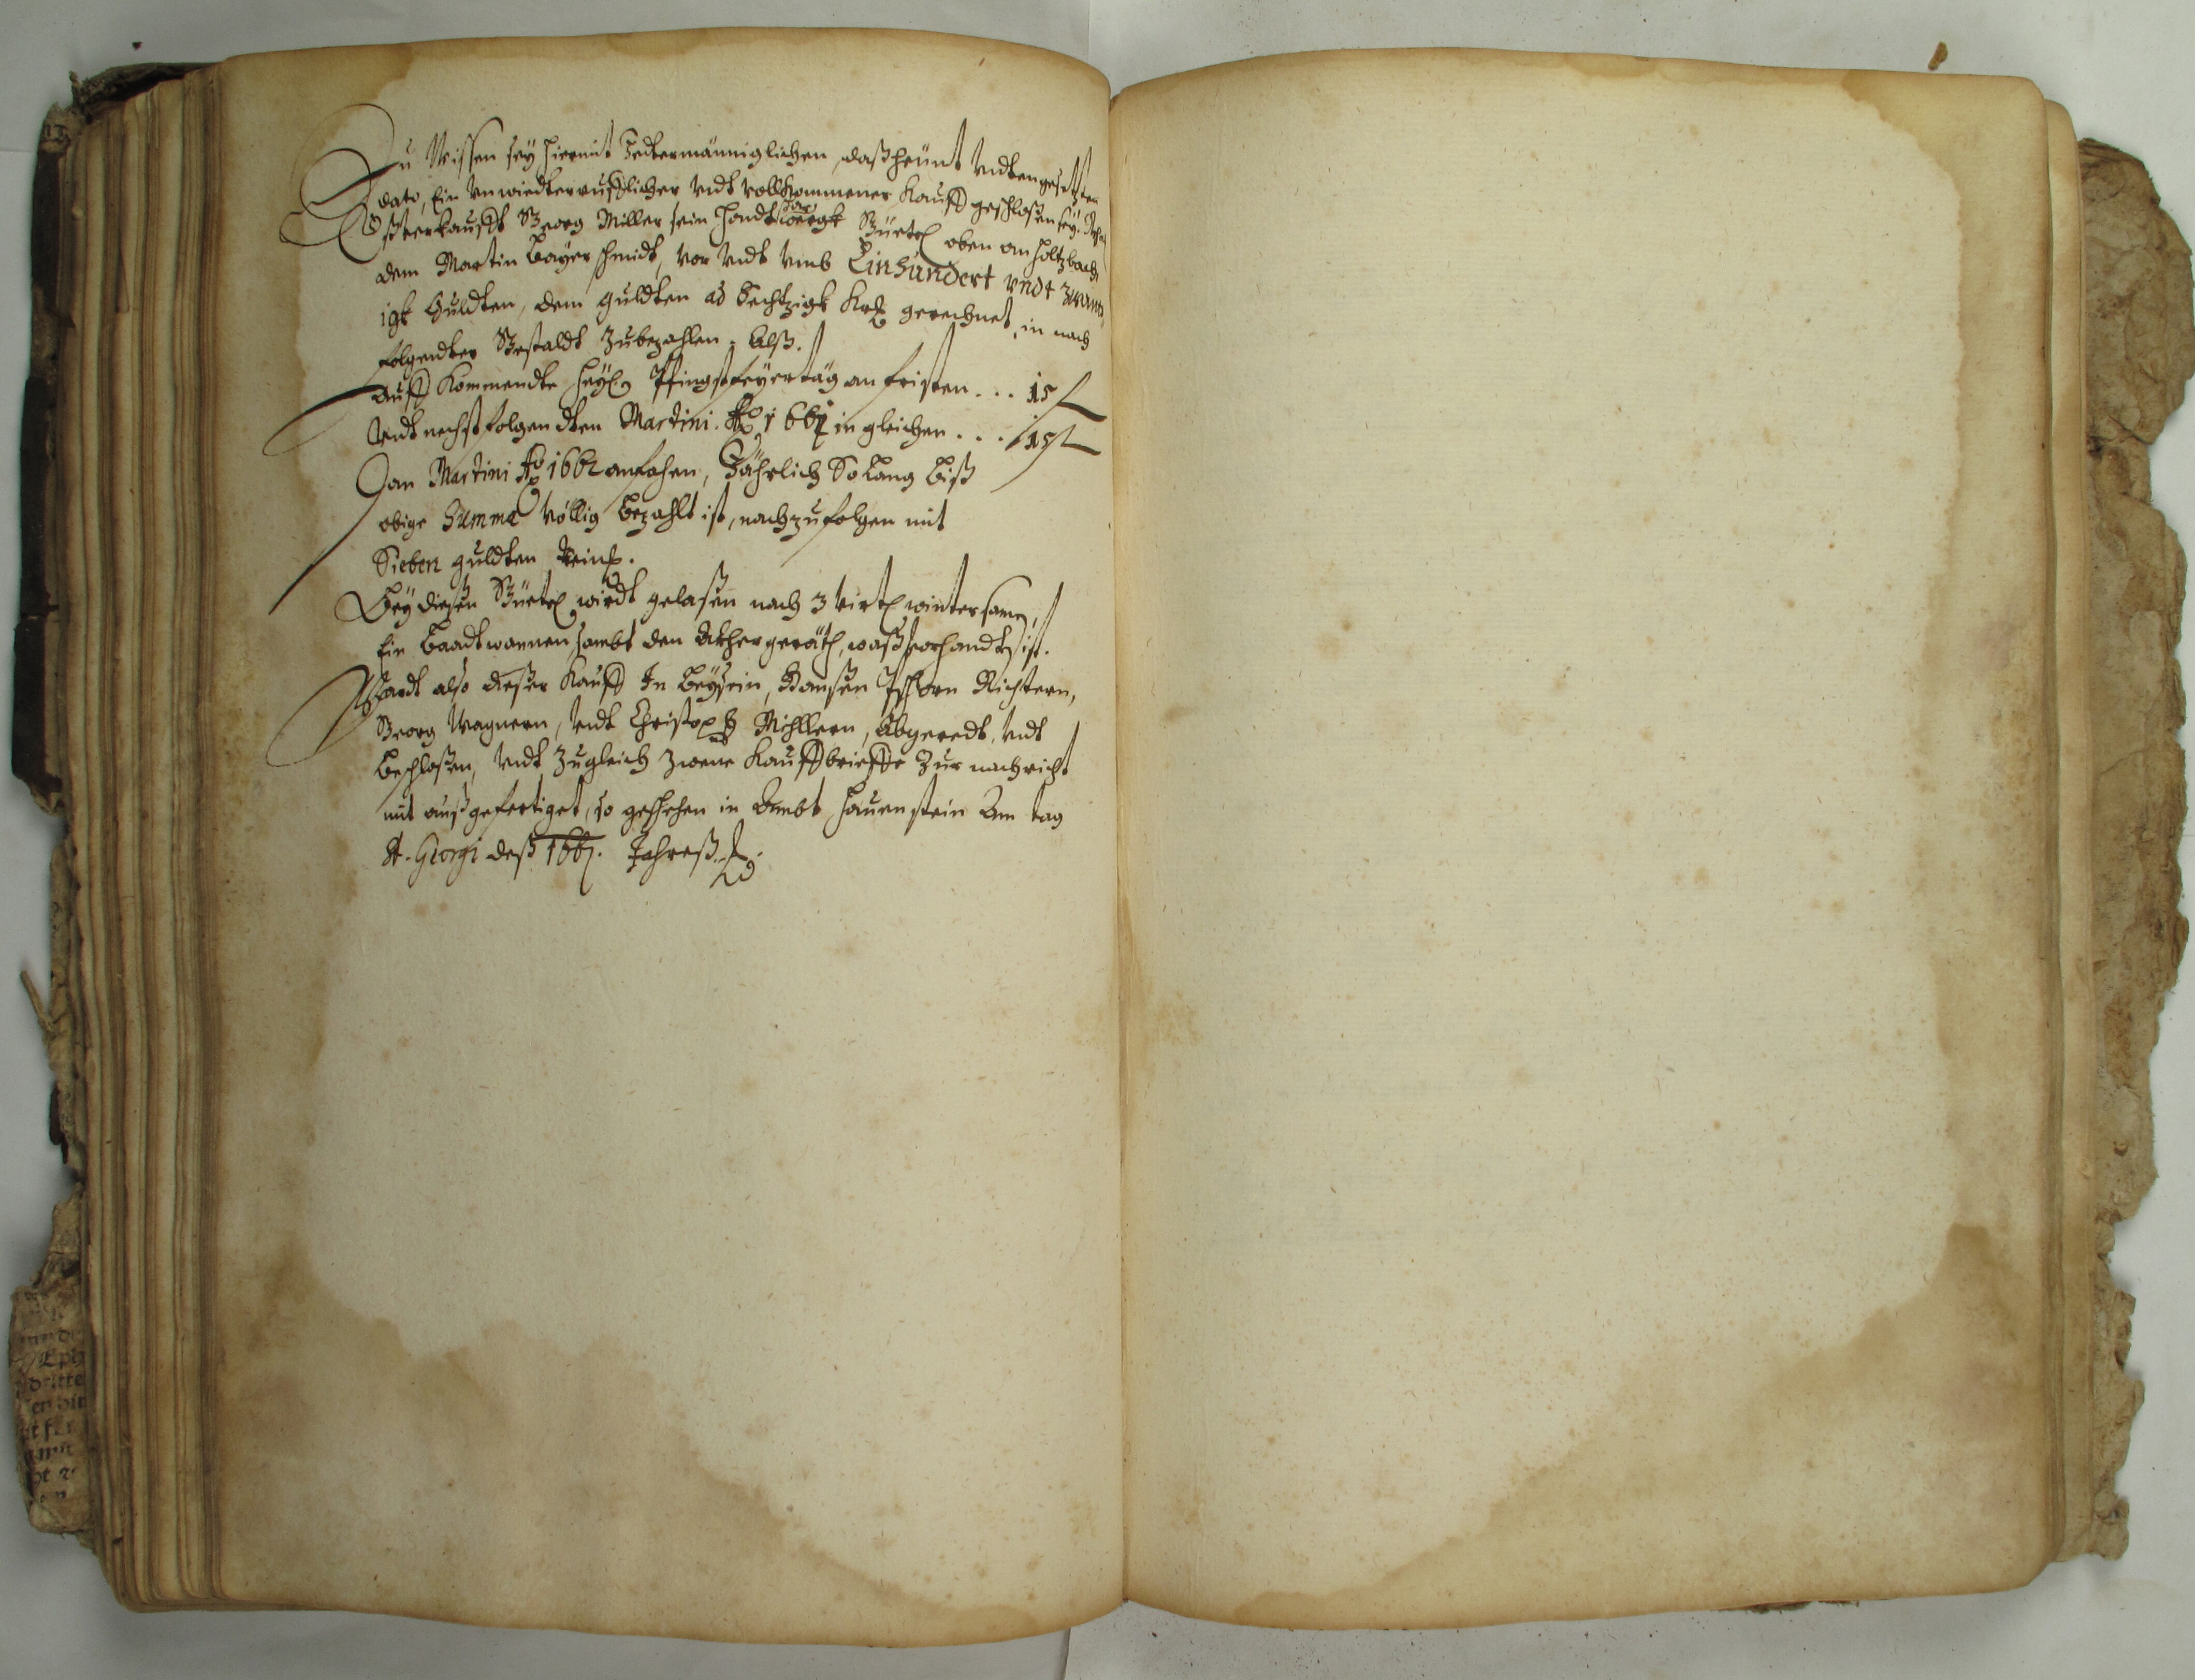 Zu Wissen sey hiermit Jedtermänniglichen, daß heünt Vndtengesetzten
dato, Ein Vnwiedterrufflicher Vndt vollkommener Kauff geschloßen sey:
Eß verkaufft Georg Miller sein Güetl oben am Holtzbach
dem Martin Bayer schmidt, vor Vndt Vmb Einhundert vndt zwantz
igk Guldten, dem guldten ad Sechtzigk gerechnet, in nach
folgendter Gestaldt Zubezahlen, Alß.
Auff Kommendte Heyl: Pfingstfeyertäg an fristen ... 15 fl
Vndt nechstfolgendten Martini. Ao 1661 in gleichen ... 15 fl
Dan Martini Ao 1662 anfahen, Jährlich So Lang Biß
obige Summa Völlig Bezahlt ist, nachzufolgen mit
Sieben guldten Rein:
Bey diesen Güetl wirdt gelaßen nach 3 virtl winter samen,
Ein Baadtwannen sambt den Ackhergeräth, waß vorhandten ist.
Wardt also dießer Kauff In Beysein, Hansen Richtern,
Georg Wagnern, Vndt Christoph Millern, Abgeredt, Vndt
Beschloßen, Vndt Zugleich Zwene Kauffbrieffe Zur nachricht
mit außgefertiget, so geschehen in Ambt Hauenstein Am tag
St. Georgi deß 1661. Jahreß.